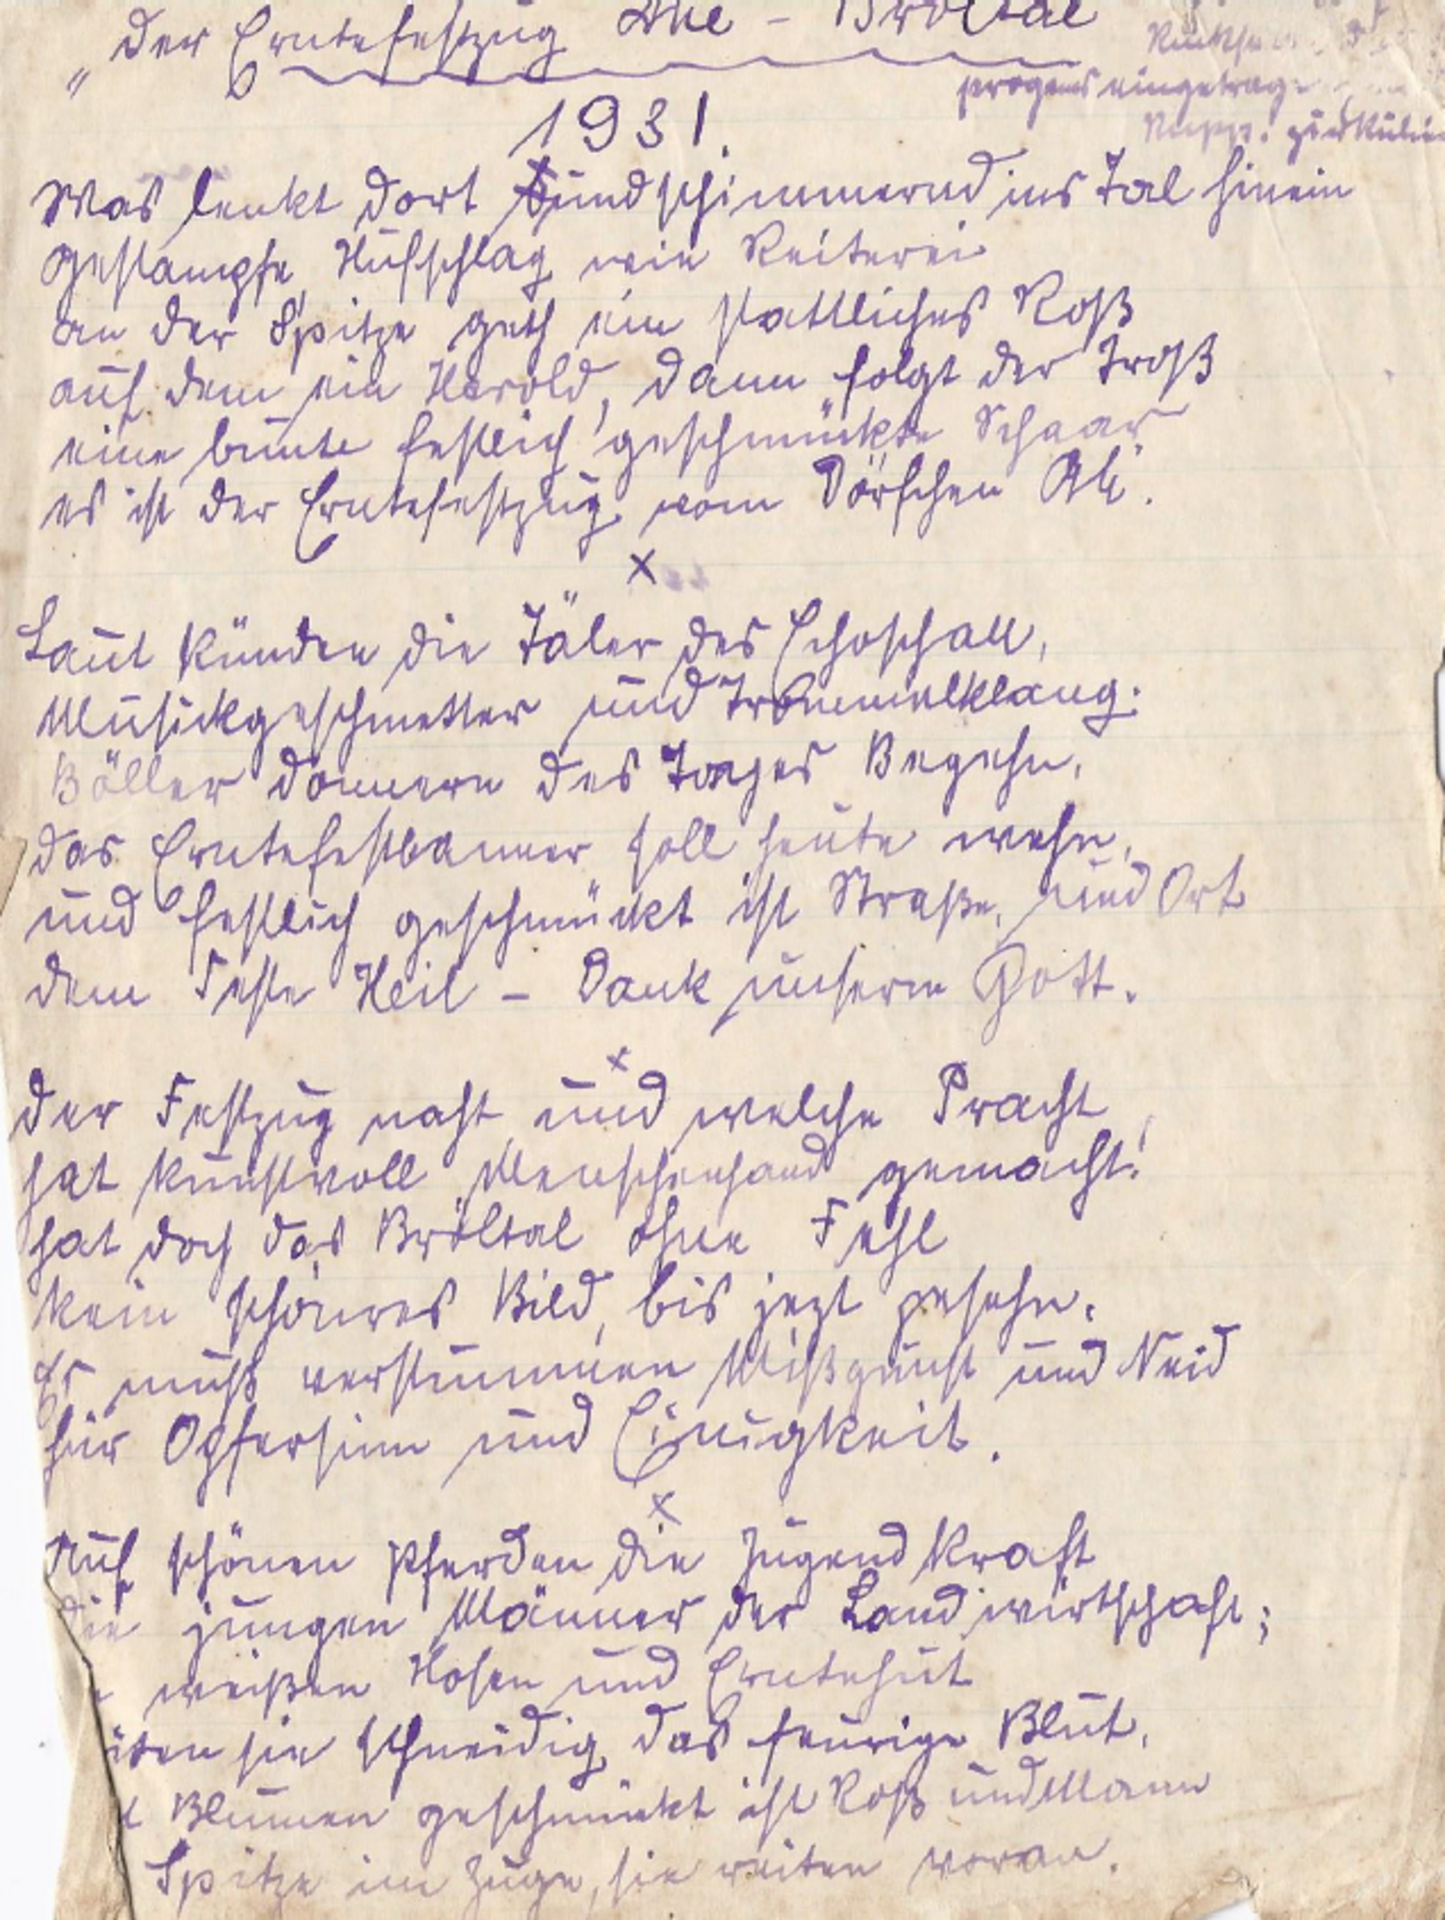 „Der Erntefestzug Ahe – Bröltal
1931.
eingetrag
Was lenkt dort buntschimmernd ins Tal hinein
Gestampfe, Hufschlag wie Reiterei
an der Spitze geth ein stattliches Roß
auf dem ein Herold, dann folgt der Troß
eine bunte festlich geschmückte Schaar
es ist der Erntefestzug vom Dörfchen Ah.
x
Laut künden die Täler des Echoschall,
Musickgeschmetter und Trommelklang.
Böller donnern des Tages Begehn,
das Erntefestbanner soll heute wehn,
und festlich geschmückt ist Straße, und Ort
dem Feste Heil – Dank unserm Gott.
x
Der Festzug naht und welche Pracht
hat kunstvoll Menschenhand gemacht!
hat doch das Bröltal ohne Fehl
kein schönres Bild, bis jezt gesehn.
Es muß verstummen Mißgunst und Neid
für Opfersinn und Einigkeit.
x
Auf schönen Pferden die Jugendkraft
die jungen Männer der Landwirtschaft;
weißen Hosen und Erntehut
sie schneidig das feurige Blut,
Blumen geschmückt ist Roß und Mann
Spitze im Zuge, sie reiten voran.